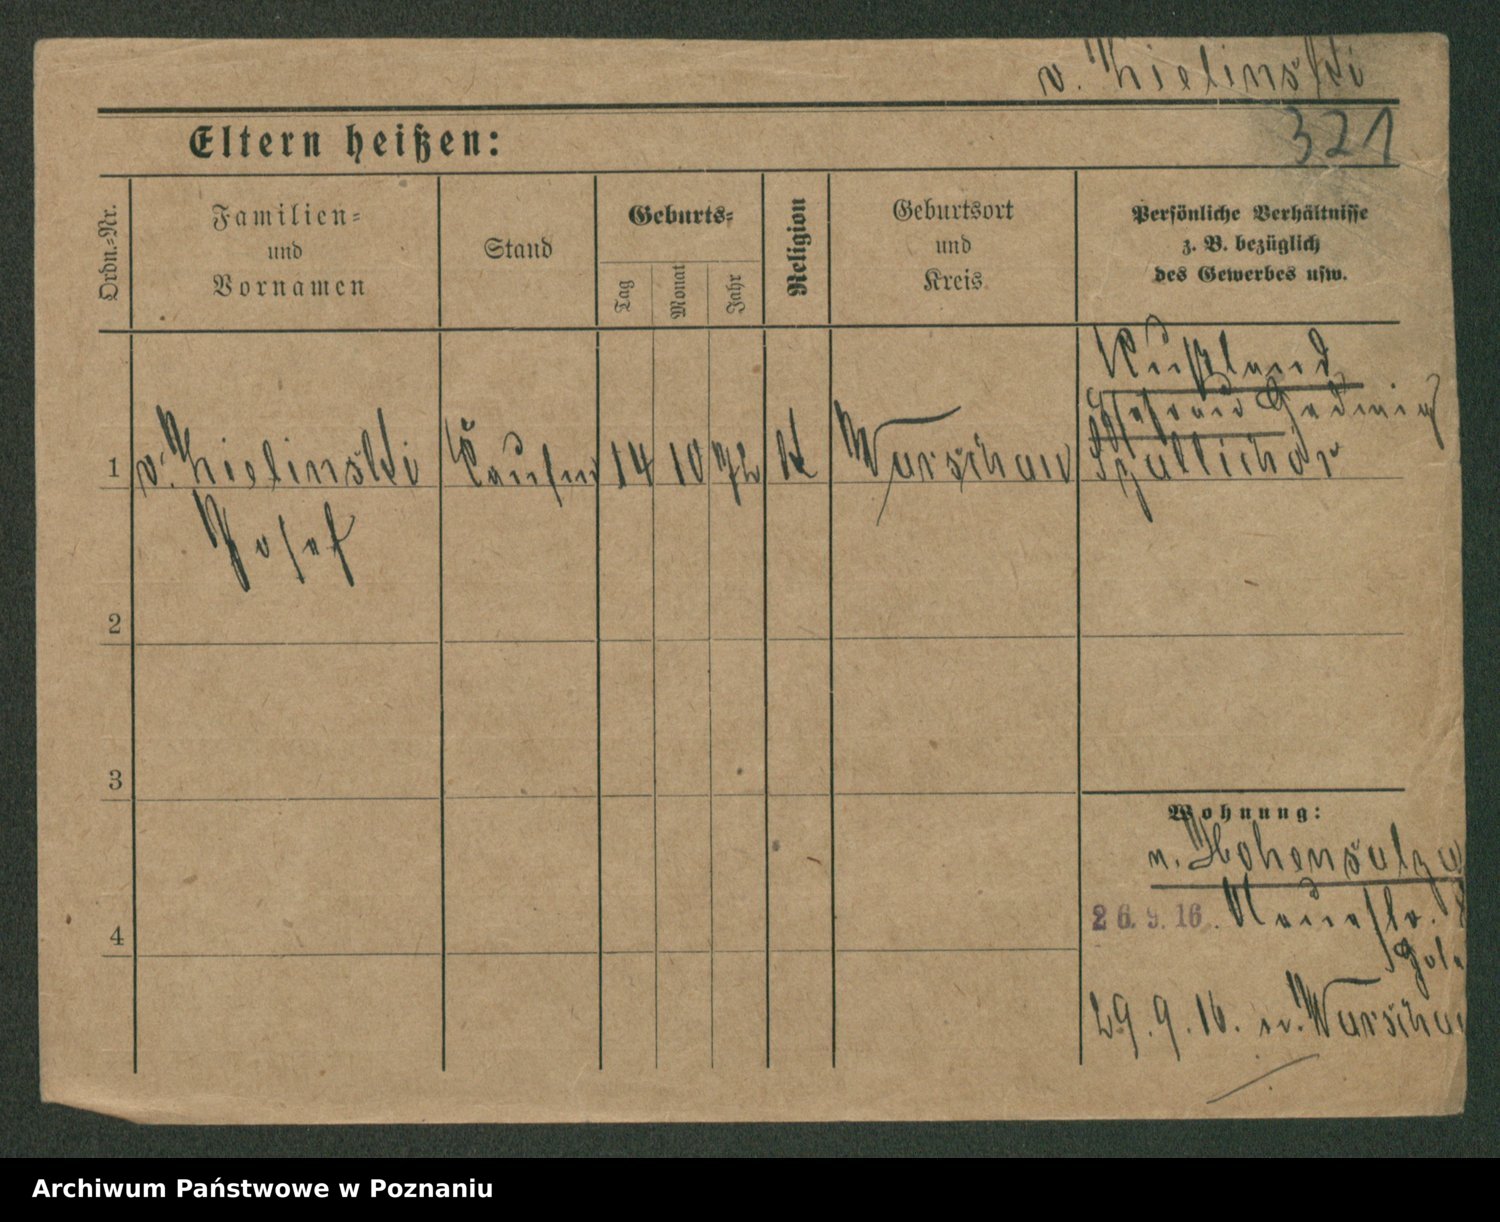 v. Zielinski
321
Eltern heißen:
Ordn.-Nr.
Familien-
und
Vornamen
Stand
Geburts-
Tag
Monat
Jahr
Religion
Geburtsort
und
Kreis
Persönliche Verhältnisse
z. B. bezüglich
des Gewerbes usw.
Rußland
Ehefrau Hedwig
1 v. Zielinski Kaufm 14 10 72 K Warschau
Josef
2
3
4
Wohnung:
n. Hohensalza
26. 9. 16. Neuestr.
29. 9. 16. n. Warschau
Archiwum Państwowe w Poznaniu